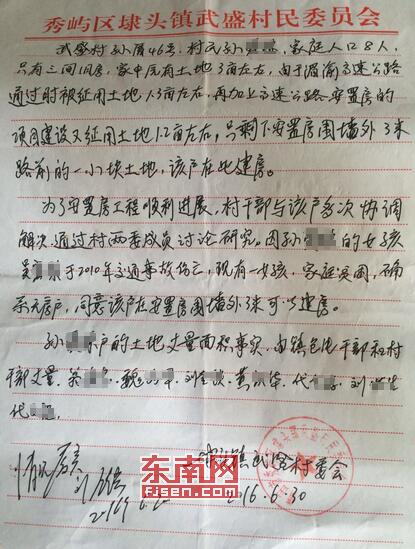 秀屿区埭头镇武盛村民委员会
武盛村孙厝46号,村民孙,家庭人口8人,
只有三间旧房,家中原有土地3亩左右,由于湄渝高速公路
通过时被征用土地1.3亩左右,再加上高速公路安置房的
项目建设又征用土地1.2亩左右,只剩下安置房围墙外3米
路前的一小块土地,该户在此建房。
为了安置房工程顺利进展,村干部与该户多次协调
解决通过村两委成员讨论研究。因孙的女孩
于2010年交通事故伤亡,现有一女孩,家庭困,确
系无房户,同意该户在安置房围墙外3米可以建房。
孙户的土地丈量面积事实,由镇包片干部和村
干部丈量,魏,刘,黄华,代,刘
代
埭头镇武盛村委会
2016.6.30
东南网
FJSEN.COM